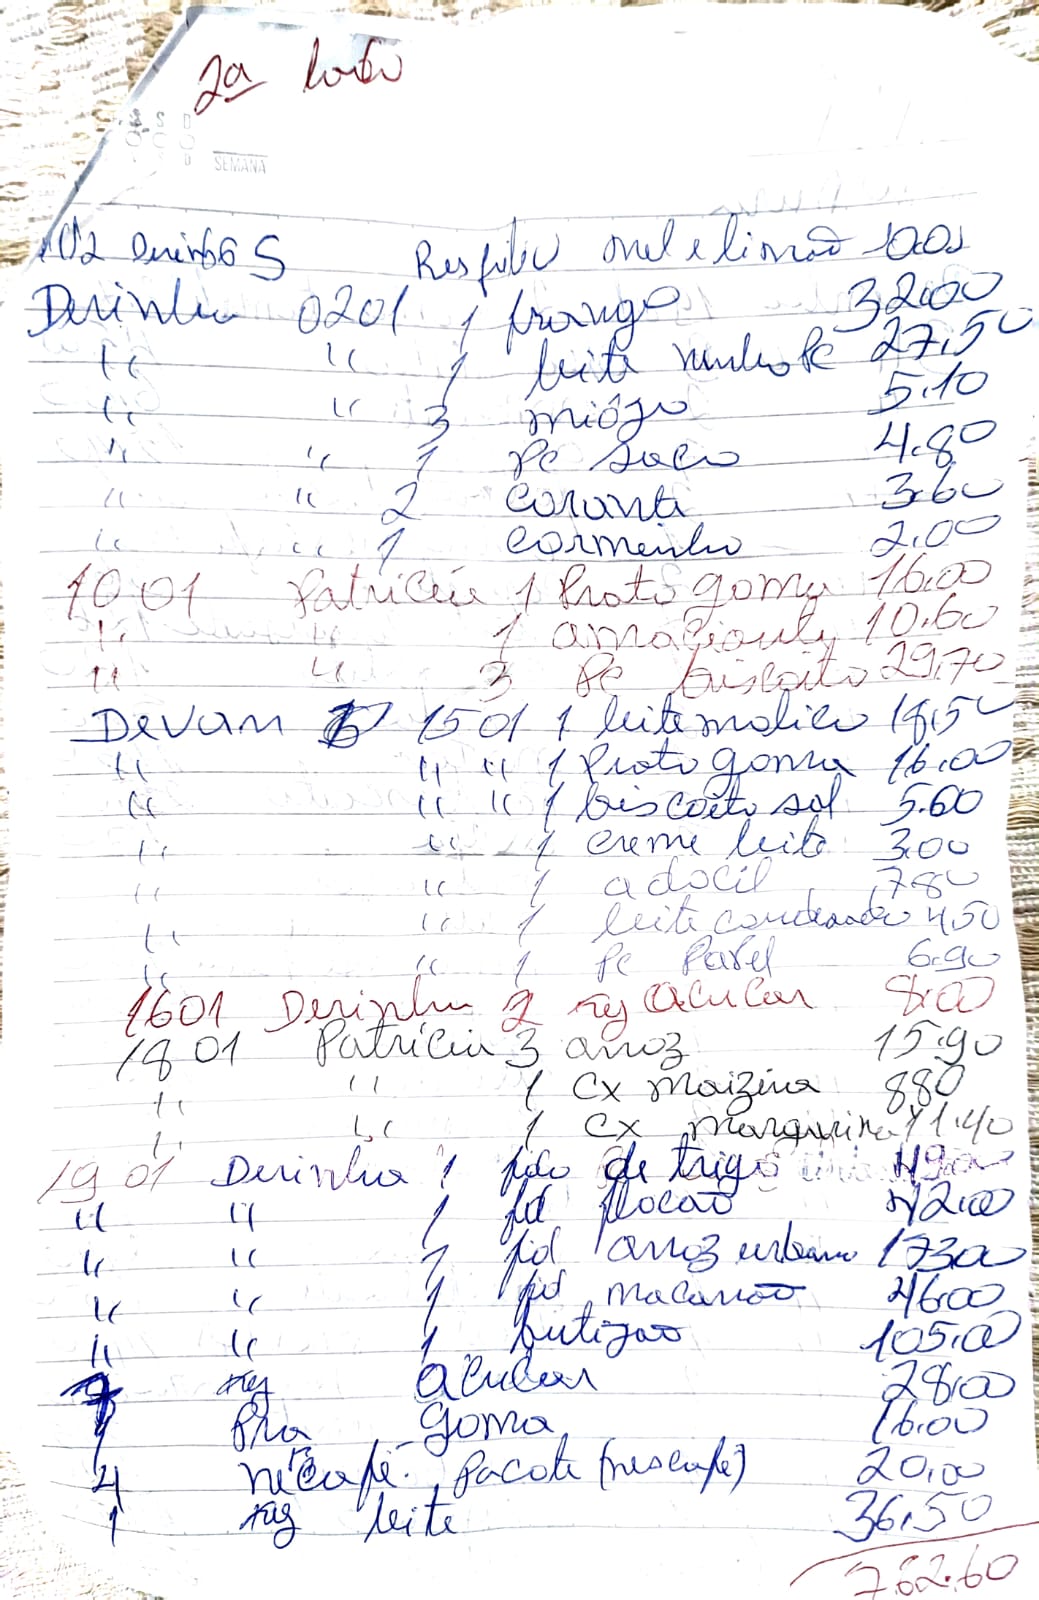 2ª
S S D
SEMANA
S D
102 Derinho S Resfuliv mel e limão 10.00
Derinho 0201 1 frango 32.00
" " 1 leite ninho Pc 27,50
" " 3 miójo 5.10
" " 1 Pc saco 4.80
" " 2 coranti 3.60
" " 1 corminho 2.00
10 01 Patricia 1 Prato goma 16.00
" " 1 amacianti 10.60
" " 3 Pc biscoito 29.70
Devan 15 01 1 leite molico 18,50
" " " 1 Prato goma 16.00
" " " 1 biscoito sal 5.60
" " 1 creme leite 3.00
" " 1 adocil 7.80
" " 1 leite condensado 4,50
" " 1 Pc Papel 6.90
1601 Derinho 2 kg Acucar 8.00
18 01 Patricia 3 arroz 15.90
" " 1 Cx maizina 880
" " 1 Cx margurina 11.40
19 01 Derinho 1 fdo de trigo 49.00
" " 1 fd flocão 42.00
" " 1 fd arroz urbano 173.00
" " 1 fd macarrão 46.00
" " 1 butijao 105.00
7 kg Acucar 28.00
1 Pra goma 16.00
4 necafé Pacote (nescafé) 20,00
1 kg leite 36,50
762.60